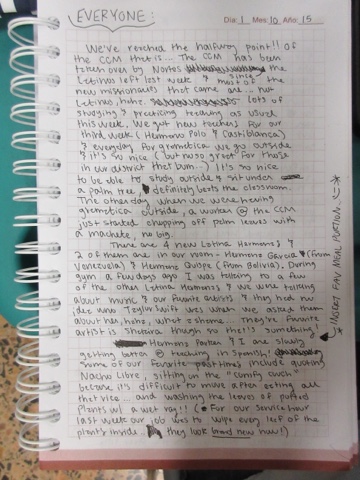 EVERYONE:
Día: 1 Mes: 10 Año: 15
We've reached the halfway point!! Of
the CCM that is... The CCM has been
taken over by Nortes the
Latinos left last week & most of the
since
the new missionaries that came are... not
Latinos, haha. lots of
studying & practicing teaching as usual
this week. We got new teachers for our
third week (Hermano Polo & Castiblanca)
& everyday for gramática we go outside
& it's so nice (but no so great for those
in our district that burn...) It's so nice
to be able to study outside & sit under
a palm tree, definitely beats the classroom.
The other day when we were having
gramática outside, a worker @ the CCM
just started chopping off palm leaves with
a machete, no big.
There are 4 new Latina Hermanas &
2 of them are in our room - Hermana Garcia (from
Venezuela) & Hermana Quispe (from Bolivia). During
gym a few days ago I was talking to a few
of the other Latina Hermanas & we were talking
about music & our favorite artists & they had no
idea who Taylor Swift was when we asked them
about her, haha, what a shame... they're favorite
artist is Shakira though so that's something!
Hermana Parker & I are slowly
getting better @ teaching in Spanish!
some of our favorite pastimes include quoting
Nacho Libre, sitting on the "comfy couch"
because it's difficult to move after eating all
that rice... and washing the leaves of potted
plants w/ a wet rag!! (For our service hour
last week our job was to wipe every leaf of the
plants inside. they look brand new now!)
* INSERT FAKE PALM